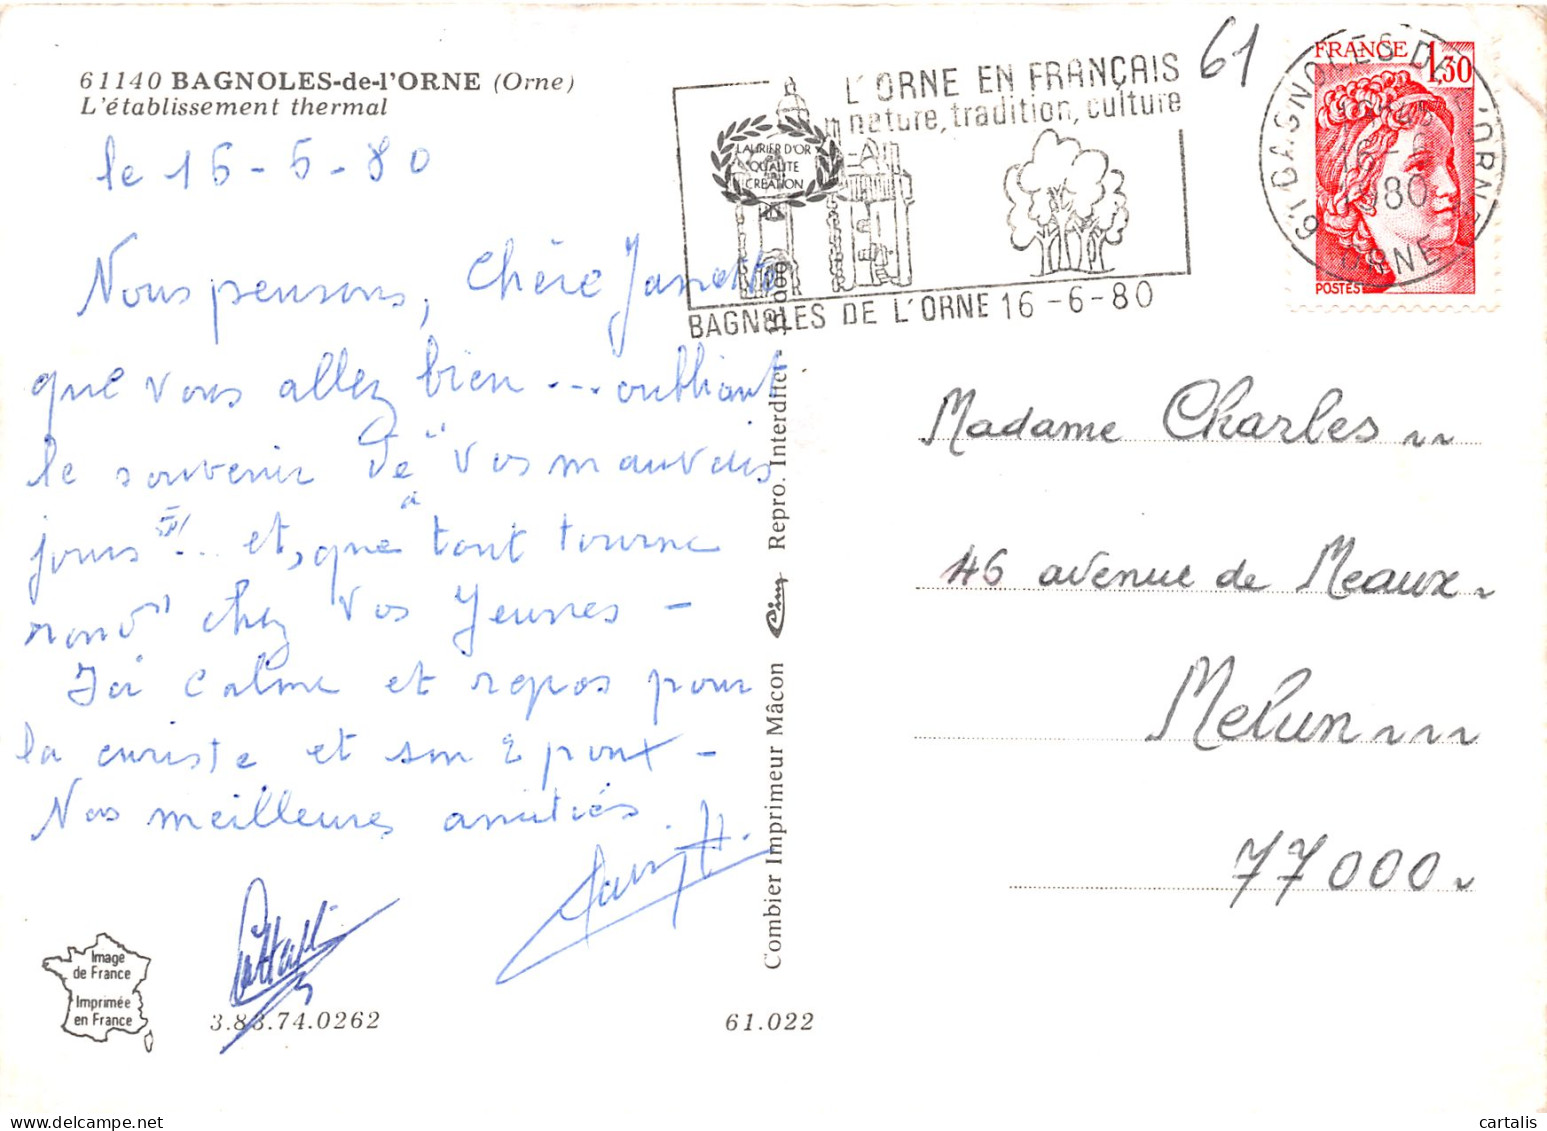 61140 BAGNOLES-de-l'ORNE (Orne)
L'établissement thermal
le 16-6-80
Nous pensons, Chère
que vous allez bien ... oubliant
le souvenir de "vos mauvais
jours" ... et, que "tout tourne
rond" chez vos Jeunes -
Ici calme et repos pour
la curiste et son Epoux -
Nos meilleures amitiés.
Image
de France
Imprimée
en France
3.83.74.0262
61.022
Combier Imprimeur Mâcon Cim Repro. Interdite -
LAURIER D'OR
QUALITE
CREATION
L'ORNE EN FRANÇAIS
nature, tradition, culture
BAGNOLES DE L'ORNE 16-6-80
61
FRANCE 1,30
POSTES
61 BAGNOLES DE L'ORNE
1980
ORNE
Madame Charles
46 avenue de Meaux
Melun
77000
cartalis